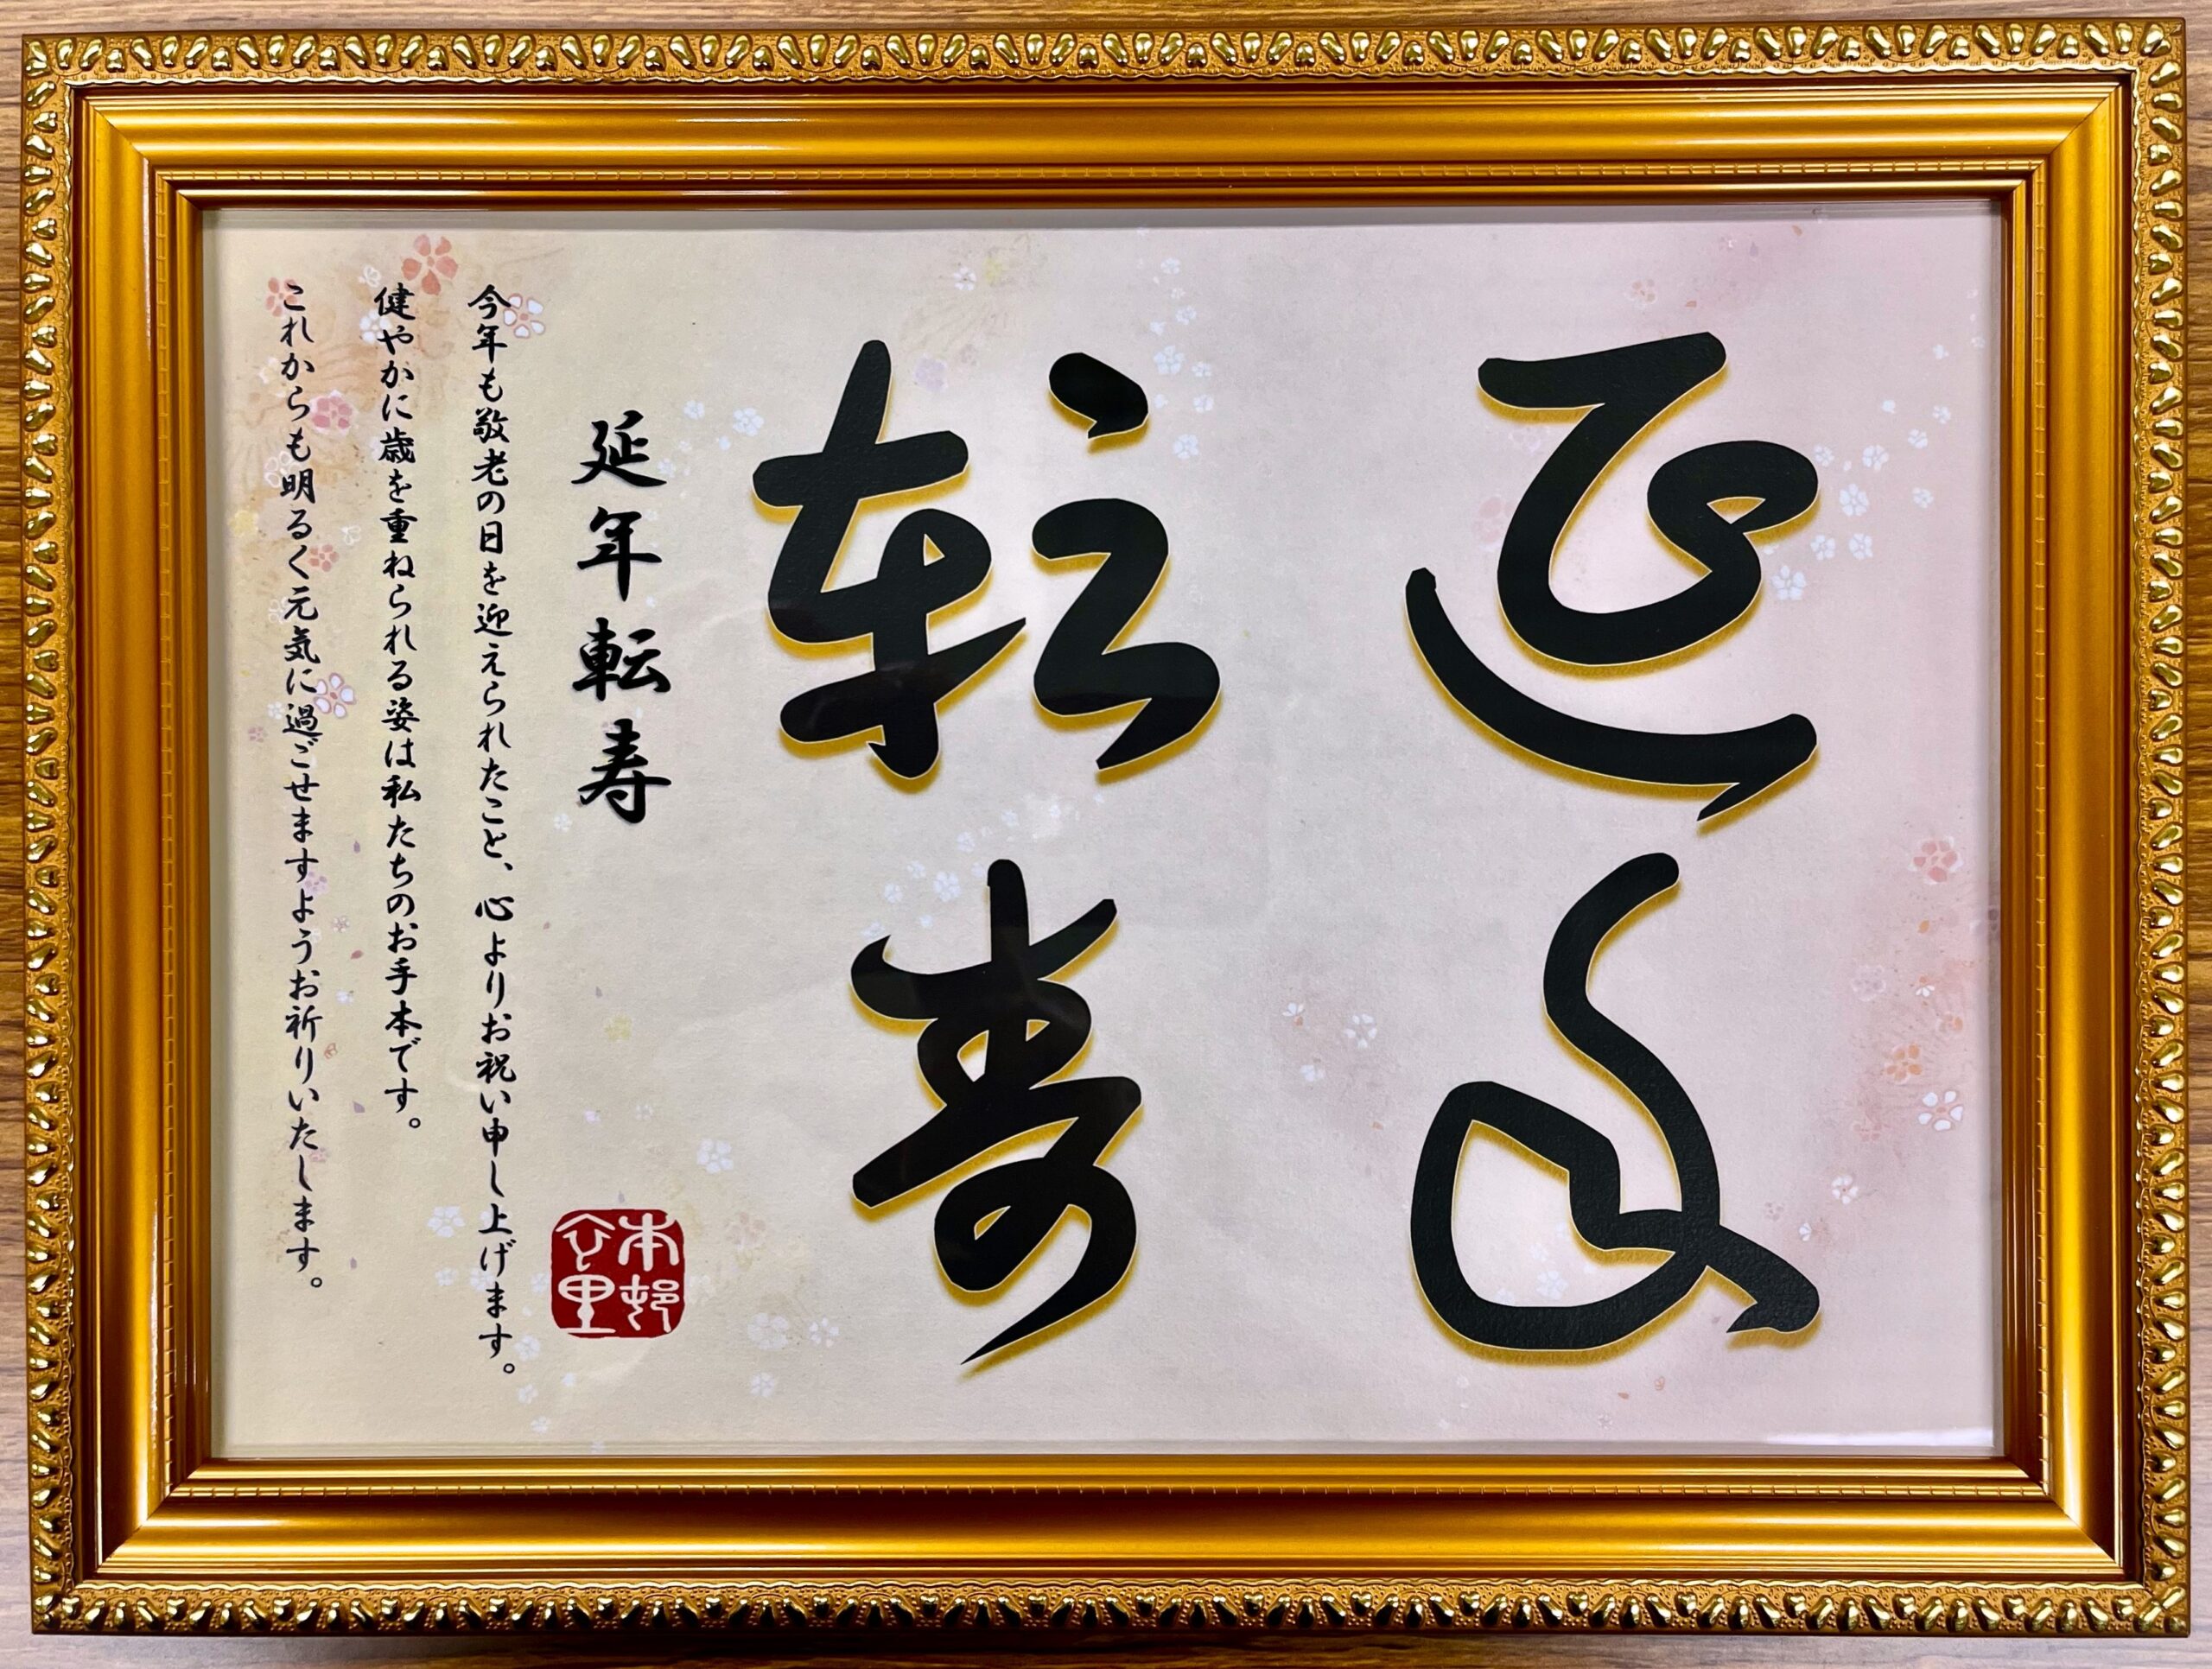 延年
転寿
延年転寿
今年も敬老の日を迎えられたこと、心よりお祝い申し上げます。
健やかに歳を重ねられる姿は私たちのお手本です。
これからも明るく元気に過ごせますようお祈りいたします。